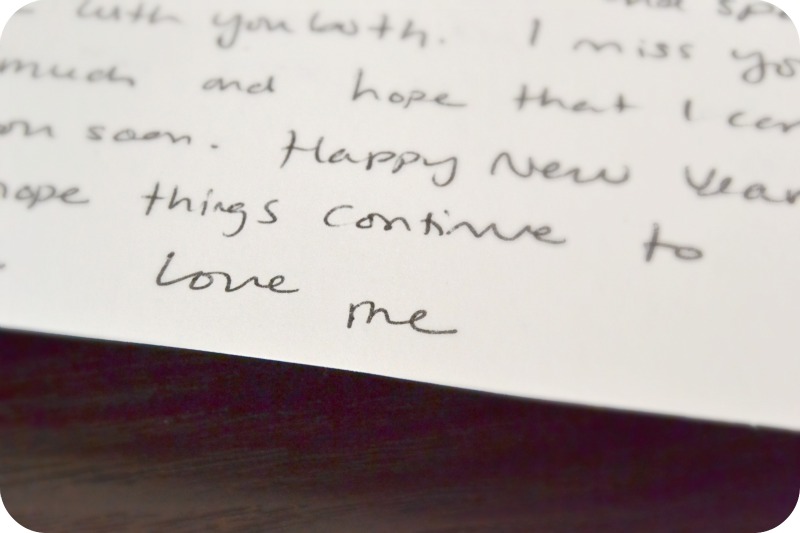 with you both. I miss yo
much and hope that I can
on soon. Happy New Year
hope things continue to
Love me